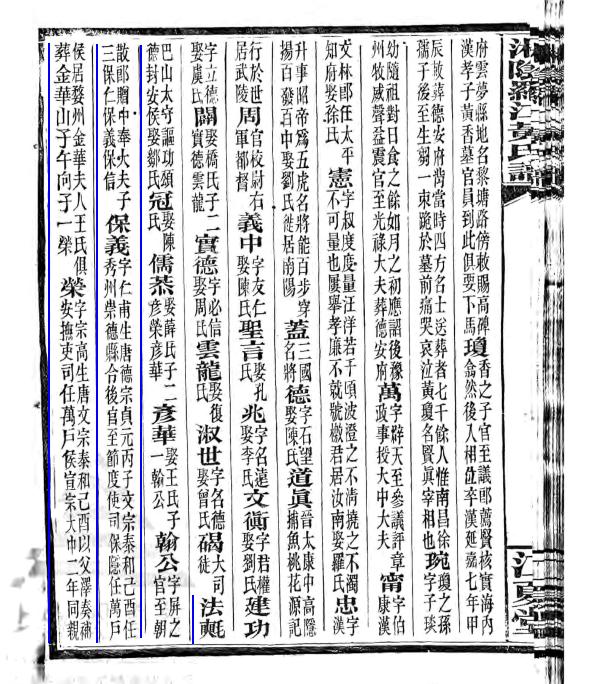 湘陰羅江黃氏譜
江夏堂
府雲夢縣地名黎塘路傍敕賜高碑
漢孝子黃香墓官員到此俱要下馬
瓊
香之子官至議郎薦賢核實海內
翕然後人相位卒漢延嘉七年甲
辰敕葬德安府背當時四方名士送葬者七千餘人惟南昌徐
孺子後至生芻一束跪於墓前痛哭哀泣黃瓊名賢眞宰相也
琬
瓊之孫
字子琰
幼隨祖對日食之餘如月之初應詔後豫
州牧威聲益震官至光祿大夫葬德安府
萬
字辟天至參議評章
政事授大中大夫
甯
字伯
康漢
文林郎任太平
知府娶徐氏
憲
字叔度度量汪洋若千頃波澄之不清撓之不濁
不可量也屢舉孝廉不就號徵君居汝南娶羅氏
忠
字
漢
升事昭帝爲五虎名將能百步穿
揚百發百中娶劉氏徙居南陽
蓋
三國
名將
德
字石望
娶陳氏
道眞
晉太康中高隱
捕魚桃花源記
行於世
居武陵
周
官校尉右
軍都督
義中
字友仁
娶陳氏
聖言
娶孔
氏
兆
字名遠
娶李氏
文衡
字君權
娶劉氏
建功
字立德
娶虞氏
闢
娶橋氏子二
實德雲龍
實德
字必信
娶周氏
雲龍
娶復
氏
淑世
字名德
娶曾氏
碣
大司
徒
法
巴山太守
功頌
德封安侯娶鄒氏
冠
娶陳
氏
儒恭
娶薛氏子二
彥榮彥華
彥華
娶王氏子
一翰公
翰公
字屏之
官至朝
散郎贈中奉火夫子
三保仁保義保信
保義
字仁甫生唐德宗貞元丙子文宗泰和己酉任
秀州崇德縣令後官至節度使司保隱任萬戶
侯居婺州金華夫人王氏俱
葬金華山子午向子一榮
榮
字宗高生唐文宗泰和己酉以父澤奏補
安撫吏司任萬戶侯宣宗大中二年同親